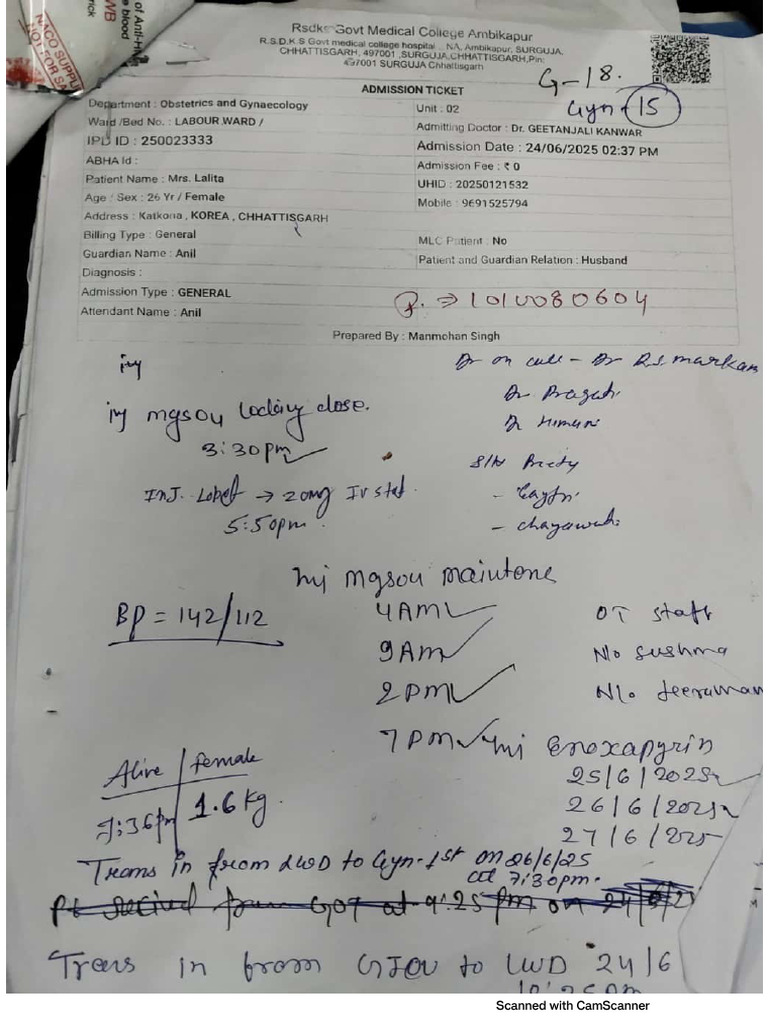 of Anti-H
e blood
WB
rick
NACO SUPPL
NOT FOR SA
Rsdks Govt Medical College Ambikapur
R.S.D.K.S Govt medical college hospital , NA, Ambikapur, SURGUJA,
CHHATTISGARH, 497001 ,SURGUJA,CHHATTISGARH,Pin:
497001 SURGUJA Chhattisgarh
ADMISSION TICKET
G-18.
Gyn-15
Department : Obstetrics and Gynaecology
Unit : 02
Ward /Bed No. : LABOUR WARD /
Admitting Doctor : Dr. GEETANJALI KANWAR
IPD ID : 250023333
Admission Date : 24/06/2025 02:37 PM
ABHA Id :
Admission Fee : ₹ 0
Patient Name : Mrs. Lalita
UHID : 20250121532
Age / Sex : 26 Yr / Female
Mobile : 9691525794
Address : Katkona , KOREA , CHHATTISGARH
Billing Type : General
MLC Patient : No
Guardian Name : Anil
Patient and Guardian Relation : Husband
Diagnosis :
Admission Type : GENERAL
⇒ 1010080604
Attendant Name : Anil
Prepared By : Manmohan Singh
Dr on call - Dr R.S. Markam
Dr Pragati
Dr
inj mgsou loading dose.
3:30pm
S/N Preety
Inj. Lobet → 20mg IV stat.
5:50pm.
inj mgsou maintone
BP = 142/112
4AM
OT staff
9AM
N/o sushma
2PM
N/o
7PM
inj Enoxapyrin
Alive | female
25/6/2025
1.6 kg.
26/6/2025
7:36pm
27/6/2025
Trans in from LWD to Gyn-1st on 26/6/25
at 7:30pm.
Pt recived from GOT at 9:25 pm on 24/6/2
Trans in from GICU to LWD 24/6
10:25pm
Scanned with CamScanner